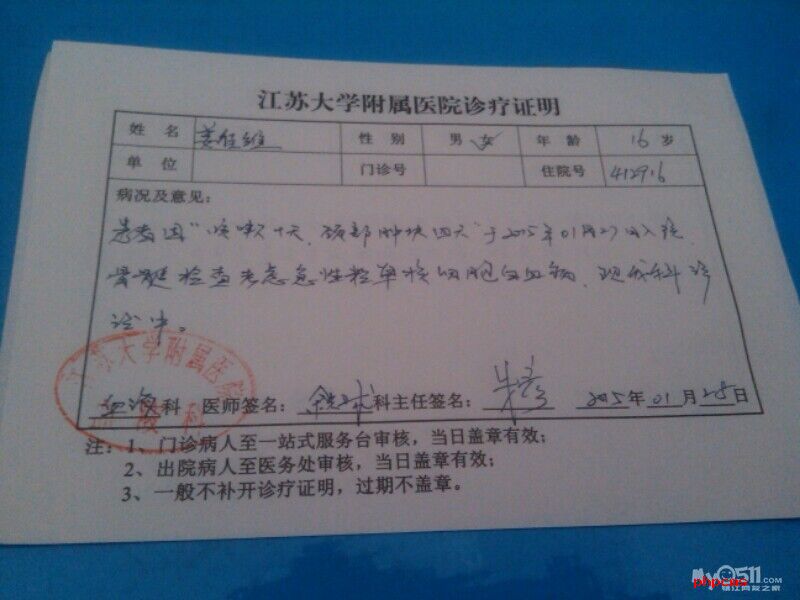 江苏大学附属医院诊疗证明
姓名 姜佳维 性别 男 女 ✓ 年龄 16 岁
单位 门诊号 住院号 412916
病况及意见：
患者因“咳嗽十天，颈部肿块四天”于2015年01月27日入院，
骨髓检查考虑急性粒单核细胞白血病，现我科诊
治中。
江苏大学附属医院
血液科
血液 科 医师签名： 科主任签名： 朱彦 2015年01月28日
注：1、门诊病人至一站式服务台审核，当日盖章有效；
2、出院病人至医务处审核，当日盖章有效；
3、一般不补开诊疗证明，过期不盖章。
My0511.COM
phpcms
镇江网友之家